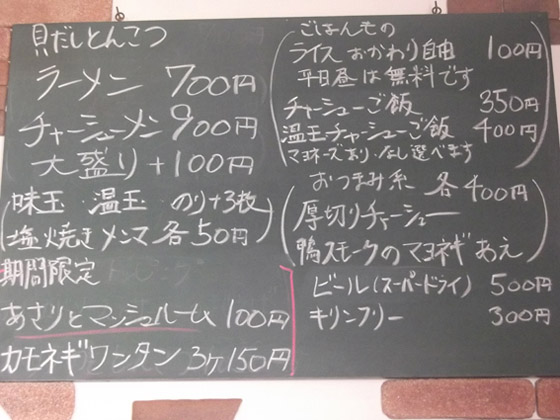 貝だしとんこつ
ラーメン 700円
チャーシューメン 900円
大盛り +100円
味玉 温玉 のり+3枚
塩焼きメンマ 各50円
期間限定
あさりとマッシュルーム 100円
カモネギワンタン 3ヶ150円
ごはんもの
ライス おかわり自由 100円
平日昼は無料です
チャーシューご飯 350円
温玉チャーシューご飯 400円
マヨネーズあり・なし選べます
おつまみ系 各400円
厚切りチャーシュー
鴨スモークのマヨネギあえ
ビール(スーパードライ) 500円
キリンフリー 300円